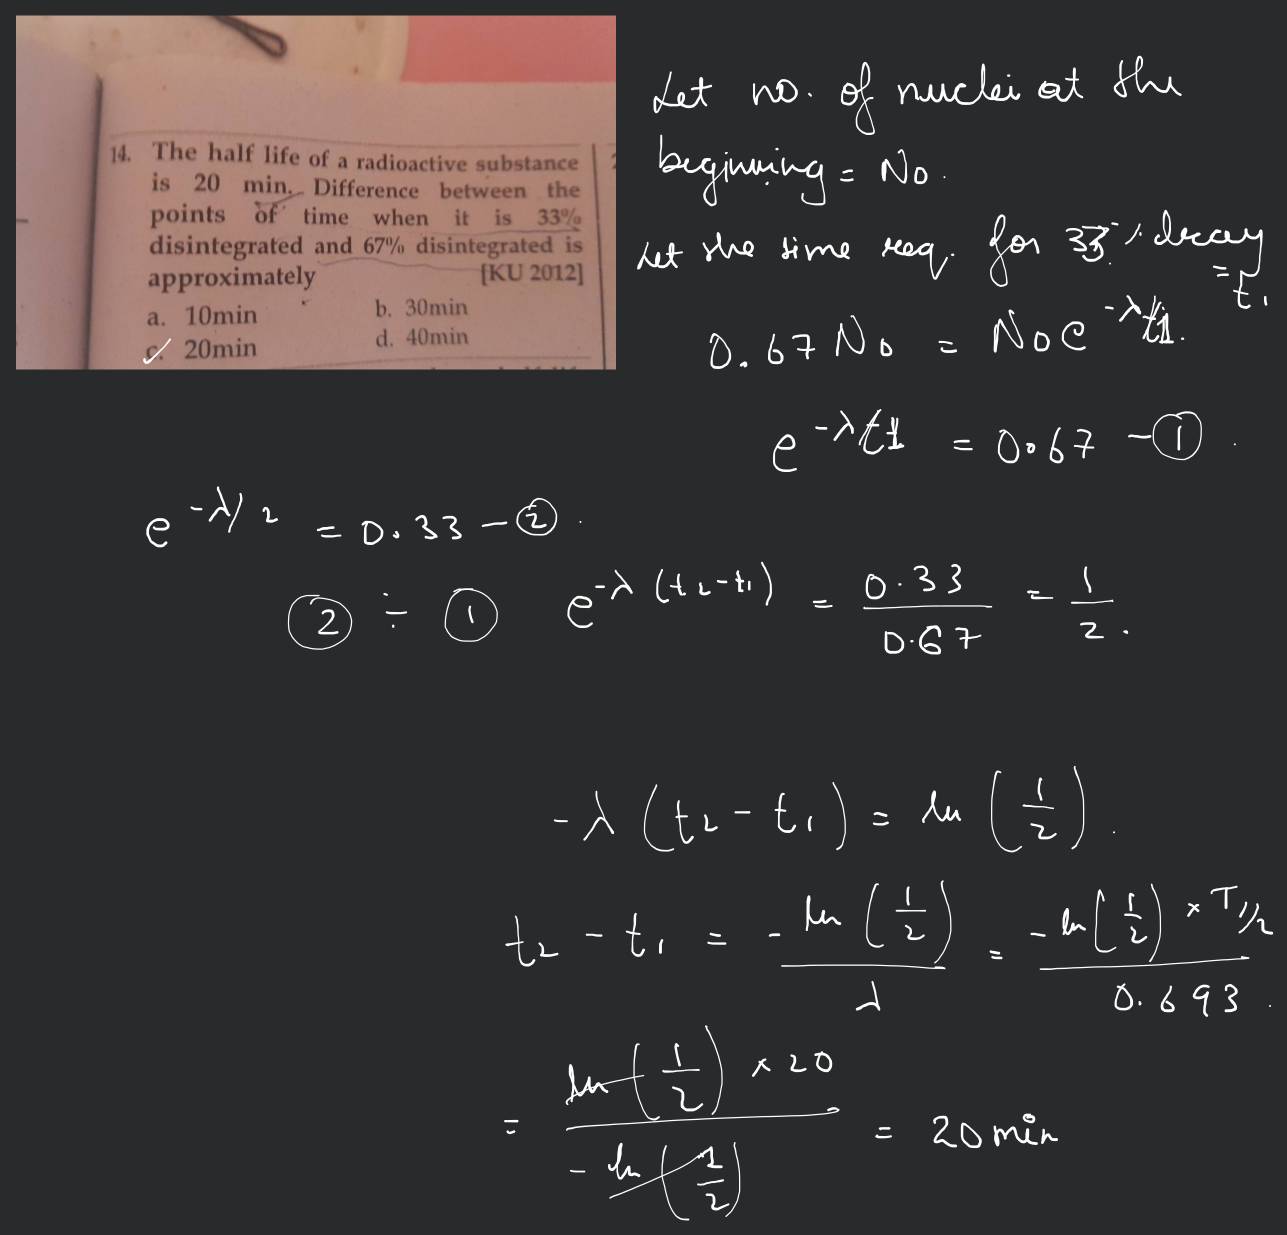 14. The half life of a radioactive substance
is 20 min. Difference between the
points of time when it is 33%
disintegrated and 67% disintegrated is
approximately [KU 2012]
a. 10min b. 30min
c. 20min d. 40min
Let no. of nuclei at the
beginning = N0.
Let the time req. for 33% decay
= t1
0.67 N0 = N0 e^-λt1.
e^-λt1 = 0.67 - ①
e^-λ/2 = 0.33 - ②.
② ÷ ① e^-λ(t2-t1) = 0.33/0.67 = 1/2.
-λ (t2 - t1) = ln (1/2).
t2 - t1 = - ln (1/2) / λ = - ln (1/2) × T1/2 / 0.693.
= ln (1/2) × 20 / - ln (1/2) = 20 min